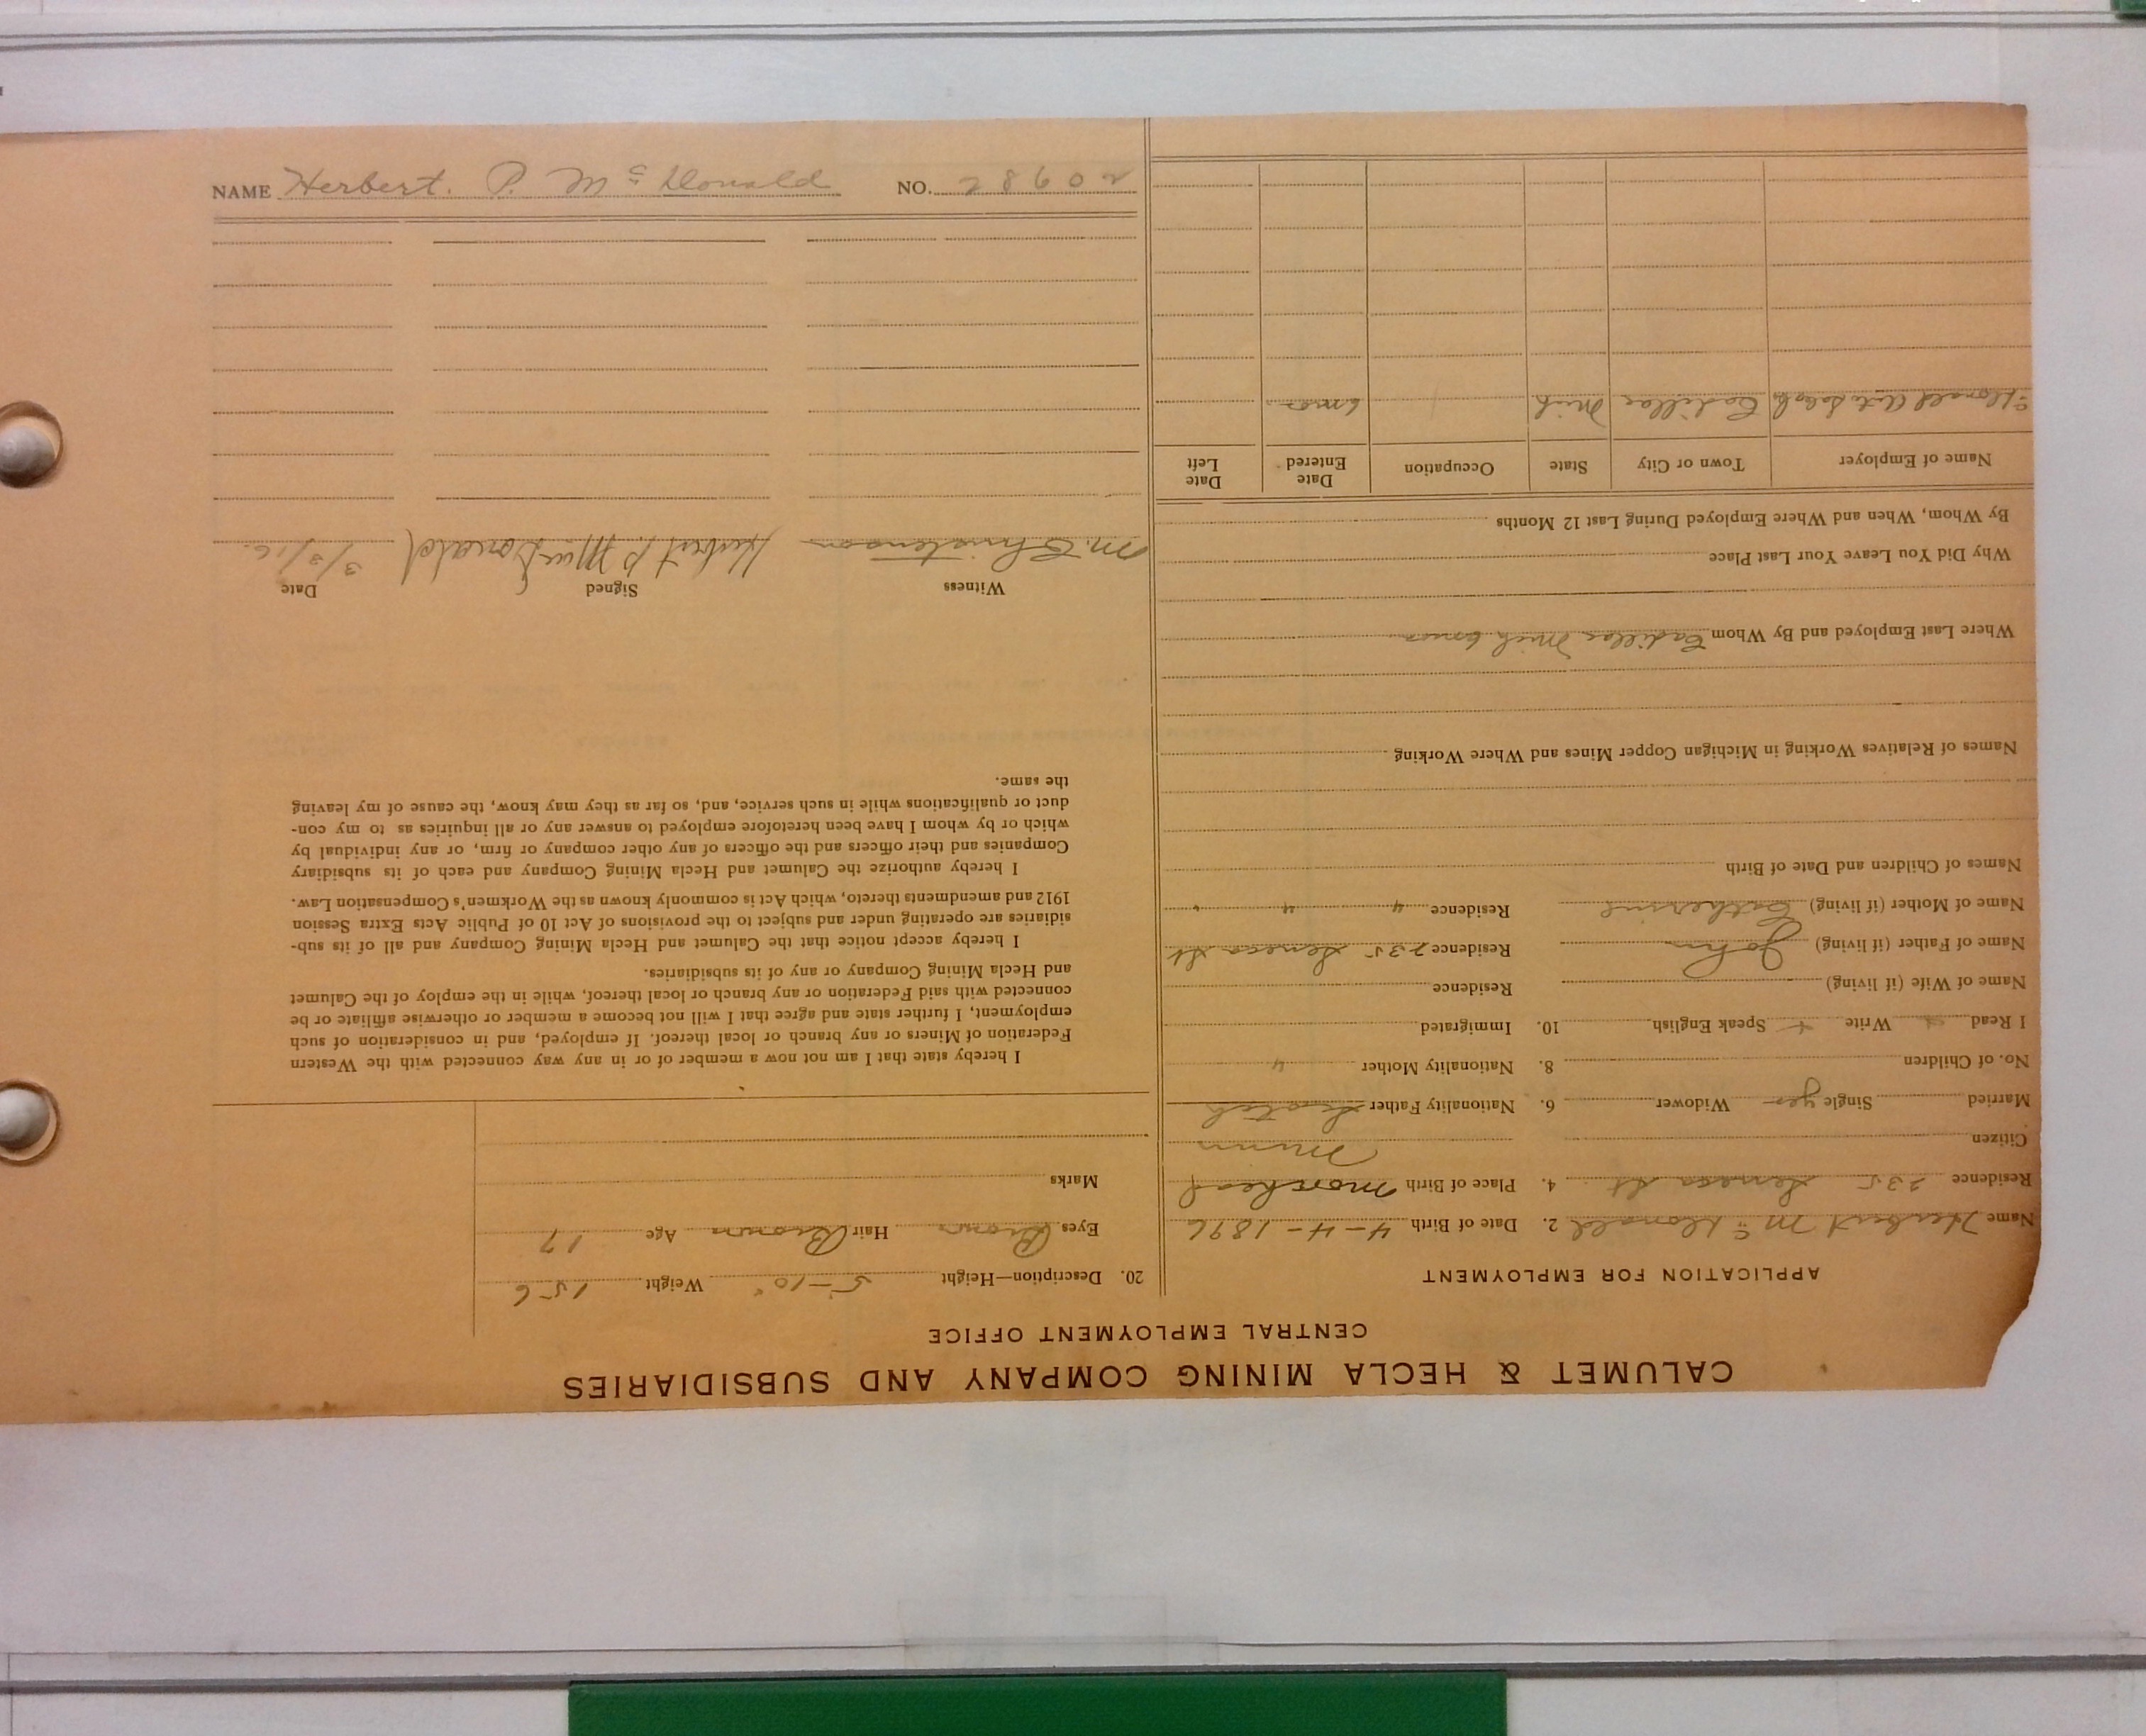 CALUMET & HECLA MINING COMPANY AND SUBSIDIARIES
CENTRAL EMPLOYMENT OFFICE
APPLICATION FOR EMPLOYMENT
Name Herbert Mc Donald 2. Date of Birth 4-4-1896
Residence 235 Seneca St 4. Place of Birth Moorhead
Citizen Minn
Married Single yes Widower 6. Nationality Father Scotch
No. of Children 8. Nationality Mother "
I Read Write Speak English 10. Immigrated
Name of Wife (if living) Residence
Name of Father (if living) John Residence 235 Seneca St
Name of Mother (if living) Catherine Residence " "
Names of Children and Date of Birth
Names of Relatives Working in Michigan Copper Mines and Where Working
Where Last Employed and By Whom Cadillac Mich 6 mos
Why Did You Leave Your Last Place
By Whom, When and Where Employed During Last 12 Months
Name of Employer Town or City State Occupation Date Entered Date Left
Donald Cadillac Mich 6 mos
20. Description—Height 5-10" Weight 156
Eyes Brown Hair Brown Age 17
Marks
I hereby state that I am not now a member of or in any way connected with the Western
Federation of Miners or any branch or local thereof. If employed, and in consideration of such
employment, I further state and agree that I will not become a member or otherwise affiliate or be
connected with said Federation or any branch or local thereof, while in the employ of the Calumet
and Hecla Mining Company or any of its subsidiaries.
I hereby accept notice that the Calumet and Hecla Mining Company and all of its sub-
sidiaries are operating under and subject to the provisions of Act 10 of Public Acts Extra Session
1912 and amendments thereto, which Act is commonly known as the Workmen's Compensation Law.
I hereby authorize the Calumet and Hecla Mining Company and each of its subsidiary
Companies and their officers and the officers of any other company or firm, or any individual by
which or by whom I have been heretofore employed to answer any or all inquiries as to my con-
duct or qualifications while in such service, and, so far as they may know, the cause of my leaving
the same.
Witness Signed Date
M. Christenson Herbert P. MacDonald 3/3/16.
NAME Herbert. P. Mc Donald NO. 28602